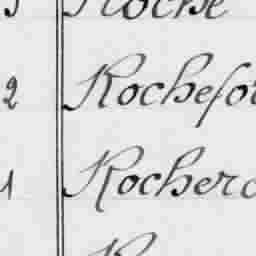 Roche
2 Rochefo
1 Roche